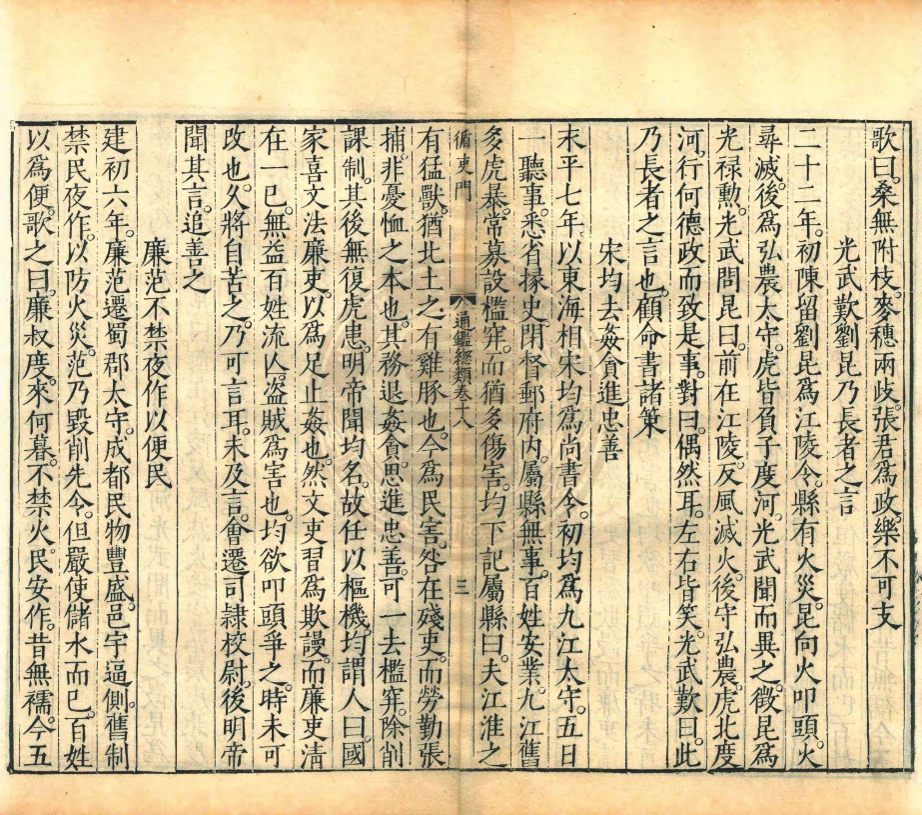 歌曰。桑無附枝。麥穗兩歧。張君爲政。樂不可支
光武歎劉昆乃長者之言
二十二年。初陳留劉昆爲江陵令。縣有火災。昆向火叩頭。火
尋滅。後爲弘農太守。虎皆負子度河。光武聞而異之。徵昆爲
光祿勲。光武問昆曰。前在江陵。反風滅火。後守弘農。虎北度
河。行何德政而致是事。對曰。偶然耳。左右皆笑。光武歎曰。此
乃長者之言也。顧命書諸策
宋均去姦貪進忠善
永平七年。以東海相宋均爲尚書令。初均爲九江太守。五日
一聽事。悉省掾史。閉督郵府內。屬縣無事。百姓安業。九江舊
多虎暴。常募設檻穽。而猶多傷害。均下記屬縣曰。夫江淮之
循吏門
通鑑總類卷十八
三
有猛獸。猶北土之有雞豚也。今爲民害。咎在殘吏。而勞勤張
捕。非憂恤之本也。其務退姦貪。思進忠善。可一去檻穽。除削
課制。其後無復虎患。明帝聞均名。故任以樞機。均謂人曰。國
家喜文法廉吏。以爲足止姦也。然文吏習爲欺謾。而廉吏清
在一己。無益百姓流亾。盗賊爲害也。均欲叩頭爭之。時未可
改也。久將自苦之。乃可言耳。未及言。會遷司隷校尉。後明帝
聞其言。追善之
廉范不禁夜作以便民
建初六年。廉范遷蜀郡太守。成都民物豐盛。邑宇逼側。舊制
禁民夜作。以防火災。范乃毀削先令。但嚴使儲水而已。百姓
以爲便。歌之曰。廉叔度。來何暮。不禁火。民安作。昔無襦。今五